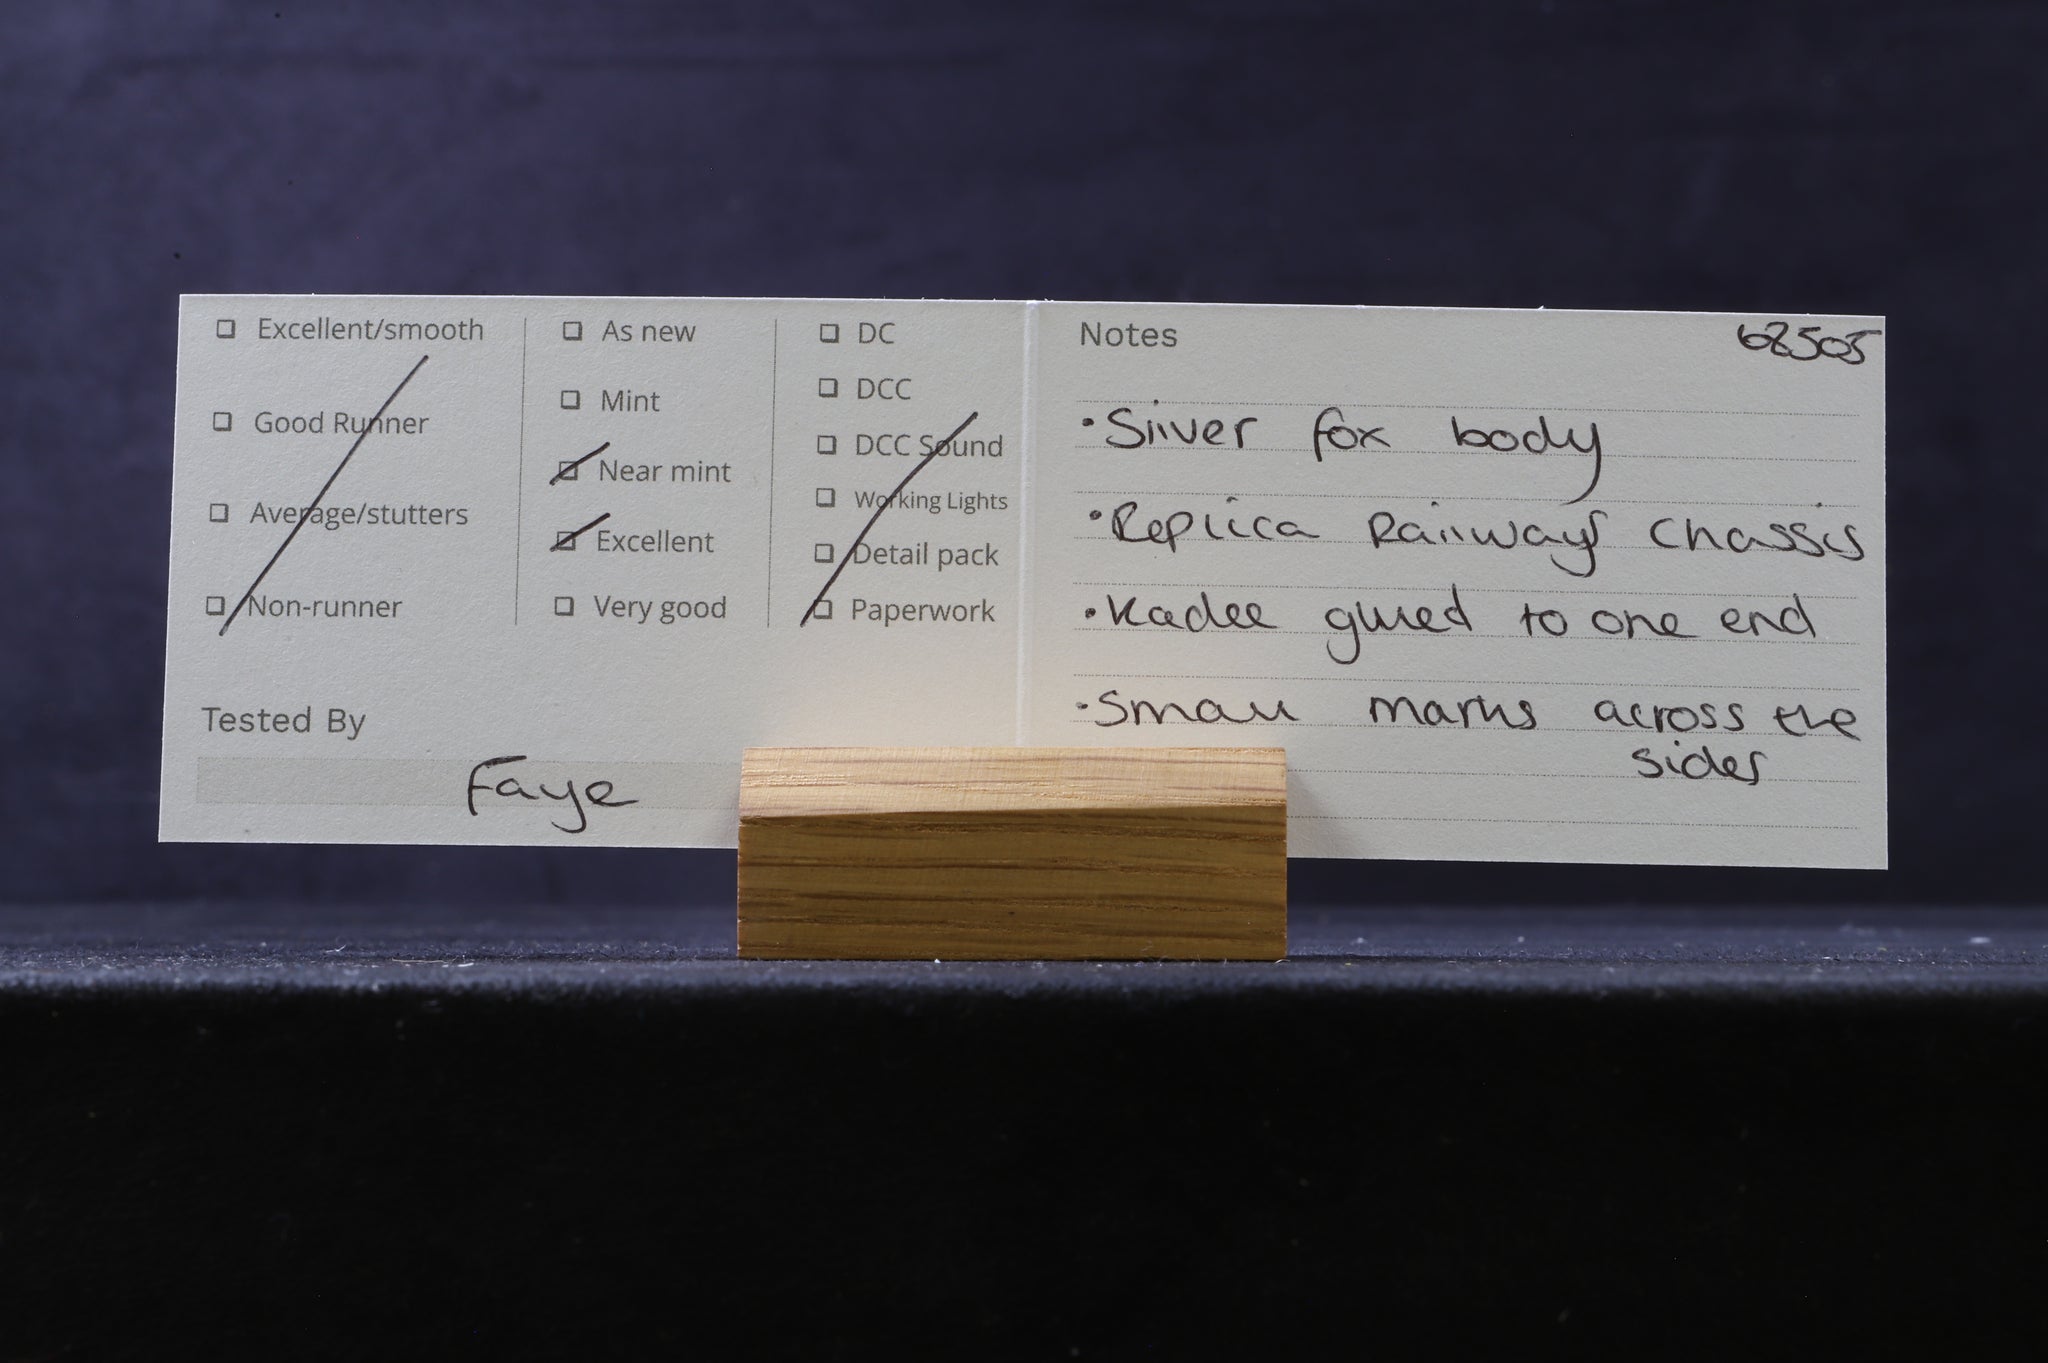 Excellent/smooth
Good Runner
Average/stutters
Non-runner
As new
Mint
Near mint
Excellent
Very good
DC
DCC
DCC Sound
Working Lights
Detail pack
Paperwork
Tested By
Faye
Notes
68505
• Silver fox body
• Replica Railways chassis
• Kadee glued to one end
• Small marks across the
sides